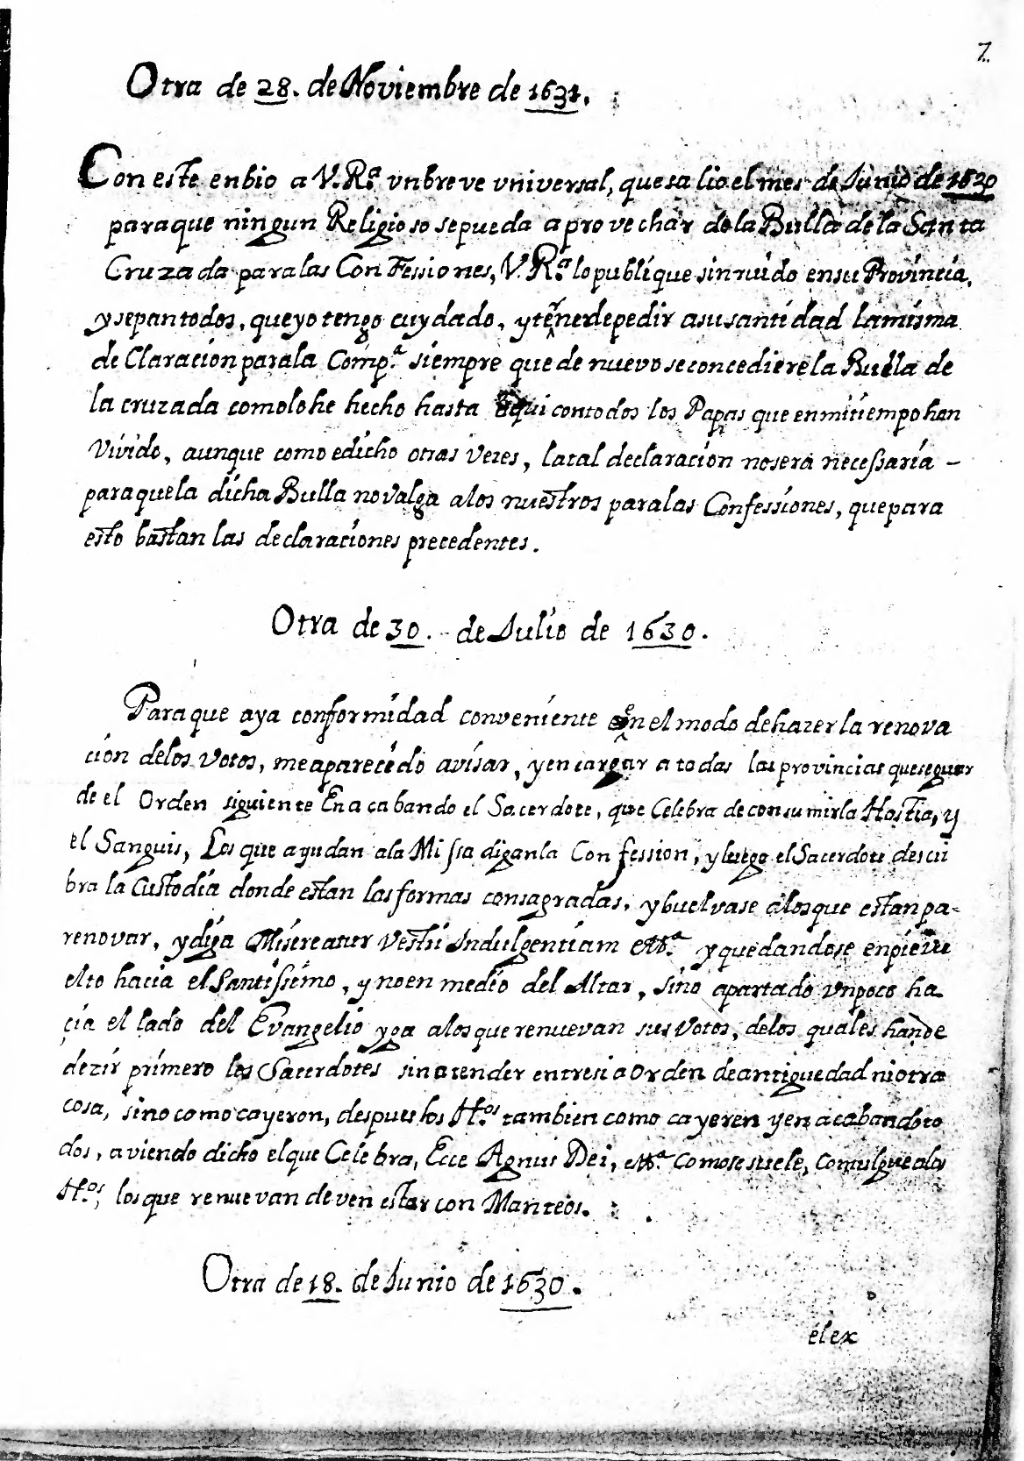 7.
Otra de 28. de Noviembre de 1631.
Con este enbio a V.Rª. vn breve vniversal, que salio el mes de Junio de 1630
para que ningun Religioso se pueda aprovechar de la Bulla de la Santa
Cruzada para las Confessiones, V.Rª. lo publique sin ruido en su Provincia,
y sepan todos, que yo tengo cuydado, y tener de pedir a su santidad la misma
de Claracion para la Compª. siempre que de nuevo se concediere la Bulla de
la cruzada como lo he hecho hasta aqui con todos los Papas que en mi tiempo han
Vivido, aunque como e dicho otras Vezes, la tal declaracion no sera necessaria –
para que la dicha Bulla no Valga a los nuestros para las Confessiones, que para
esto bastan las declaraciones precedentes.
Otra de 30. de Julio de 1630.
Para que aya conformidad conveniente en el modo de hazer la renova
cion de los Votos, me aparecido avisar, y encargar a todas las provincias que seguar
de el Orden siguiente En acabando el Sacerdote, que Celebra de consumir la Hostia, y
el Sanguis, Los que ayudan a la Missa digan la Confession, y luego el Sacerdote descu
bra la Custodia donde estan las formas consagradas, y buelvase a los que estan pa-
renovar, y diga Misereatur Vestri Indulgentiam etcª. y quedandose en pie vu
elto hacia el Santissimo, y no en medio del Altar, sino apartado vn poco ha
çia el lado del Evangelio oyga a los que renuevan sus Votos, de los quales han de
dezir primero los Sacerdotes sin atender entre si a Orden de antiguedad ni otra
cosa, sino como cayeron, despues los Hºs. tambien como cayeren y en acabando to
dos, aviendo dicho el que Celebra, Ecce Agnus Dei, etcª. como se suele, comulgue a los
Hºs; los que renuevan deven estar con Manteos.
Otra de 18. de Junio de 1630.
el ex